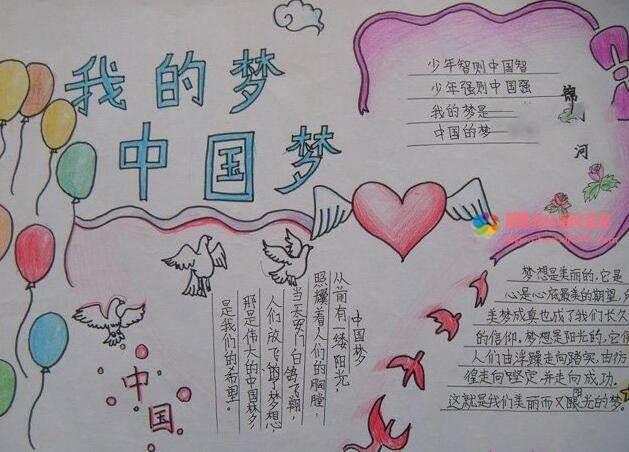 我的梦
中国梦
少年智则中国智
少年强则中国强
我的梦是
中国的梦
锦
河
中国梦
从前有一缕阳光,
照耀着人们的胸膛,
当天安门白鸽飞翔,
人们放飞的梦想,
那是伟大的中国梦,
是我们的希望。
中国
梦想是美丽的,它是
心是心底最美的期望,
美梦成真也成了我们长久
的信仰.梦想是阳光的,它使
人们由浮躁走向踏实,由彷
徨走向坚定,并走向成功.
这就是我们美丽而又阳光的梦.